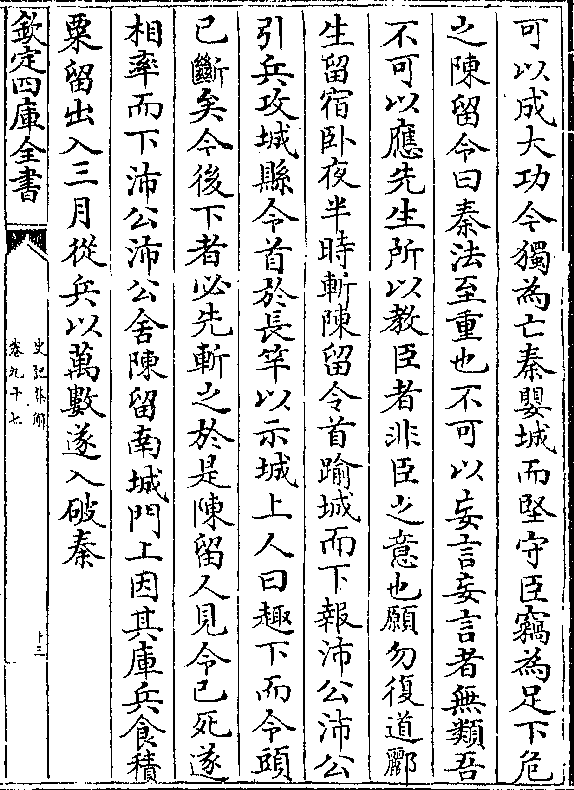 可以成大功今獨為亡秦嬰城而堅守臣竊為足下危
之陳留令曰秦法至重也不可以妄言妄言者無類吾
不可以應先生所以教臣者非臣之意也願勿復道酈
生留宿卧夜半時斬陳留令首踰城而下報沛公沛公
引兵攻城縣令首於長竿以示城上人曰趣下而令頭
已斷矣今後下者必先斬之於是陳留人見令已死遂
相率而下沛公沛公舍陳留南城門上因其庫兵食積
粟留出入三月從兵以萬數遂入破秦
欽定四庫全書
史記集解
卷九十七
十三